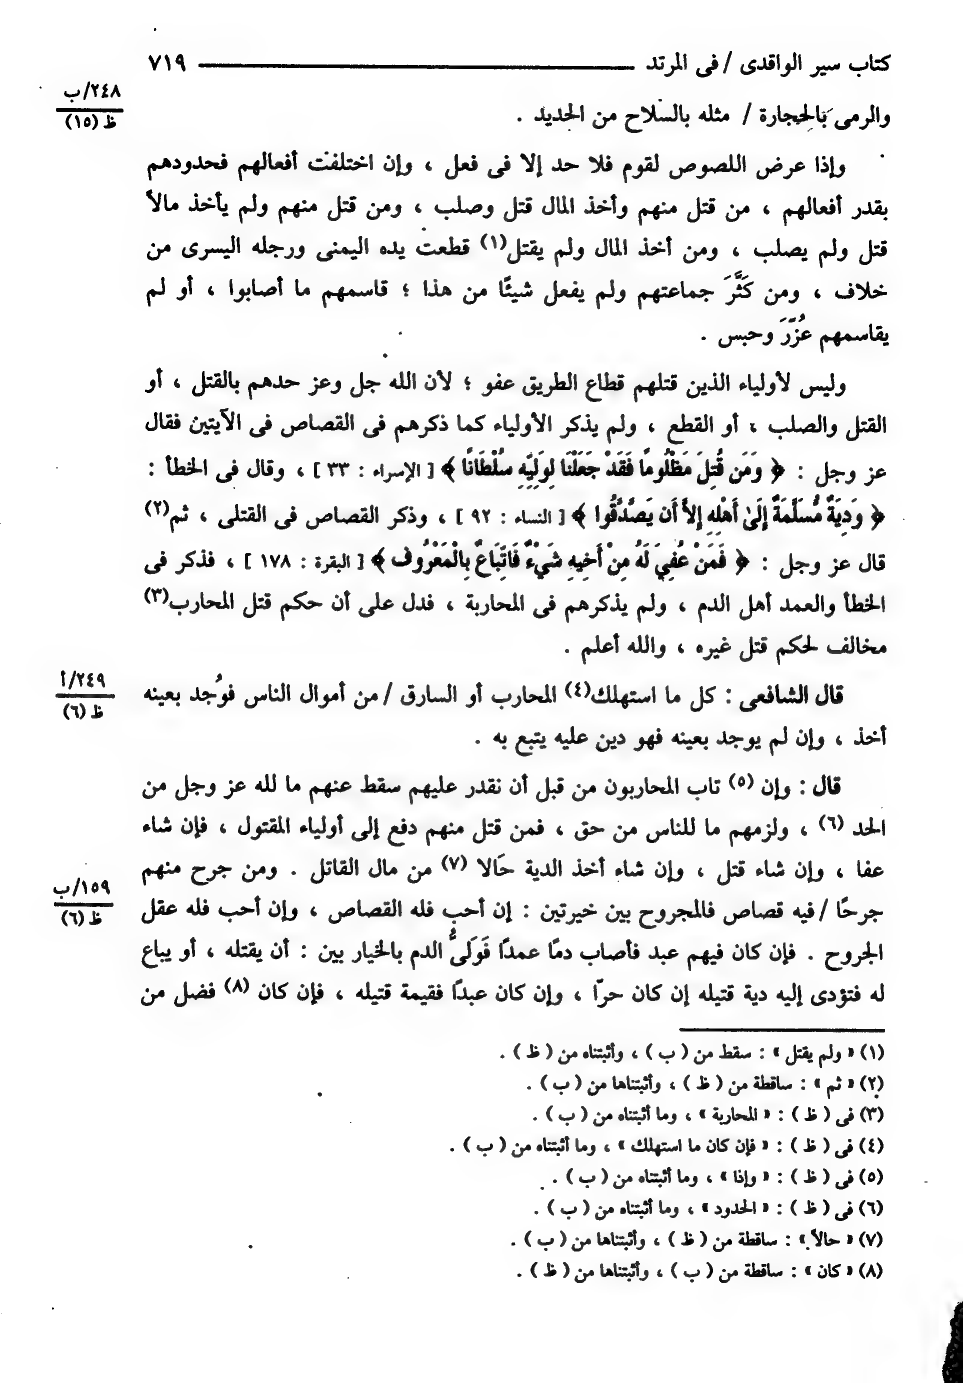 كتاب سير الواقدى / فى المرتد ــــــ ٧١٩
٢٤٨/ب
ظ (١٥)
والرمى بالحجارة / مثله بالسلاح من الحديد .
وإذا عرض اللصوص لقوم فلا حد إلا فى فعل ، وإن اختلفت أفعالهم فحدودهم
بقدر أفعالهم ، من قتل منهم وأخذ المال قتل وصلب ، ومن قتل منهم ولم يأخذ مالاً
قتل ولم يصلب ، ومن أخذ المال ولم يقتل(١) قطعت يده اليمنى ورجله اليسرى من
خلاف ، ومن كَثَّرَ جماعتهم ولم يفعل شيئًا من هذا ؛ قاسمهم ما أصابوا ، أو لم
يقاسمهم عُزِّرَ وحبس .
وليس لأولياء الذين قتلهم قطاع الطريق عفو ؛ لأن الله جل وعز حدهم بالقتل ، أو
القتل والصلب ، أو القطع ، ولم يذكر الأولياء كما ذكرهم فى القصاص فى الآيتين فقال
عز وجل : ﴿ وَمَن قُتِلَ مَظْلُومًا فَقَدْ جَعَلْنَا لِوَلِيِّهِ سُلْطَانًا ﴾ [ الإسراء : ٣٣ ] ، وقال فى الخطأ :
﴿ وَدِيَةٌ مُّسَلَّمَةٌ إِلَىٰ أَهْلِهِ إِلاَّ أَن يَصَّدَّقُوا ﴾ [ النساء : ٩٢ ] ، وذكر القصاص فى القتلى ، ثم(٢)
قال عز وجل : ﴿ فَمَنْ عُفِيَ لَهُ مِنْ أَخِيهِ شَيْءٌ فَاتِّبَاعٌ بِالْمَعْرُوفِ ﴾ [ البقرة : ١٧٨ ] ، فذكر فى
الخطأ والعمد أهل الدم ، ولم يذكرهم فى المحاربة ، فدل على أن حكم قتل المحارب(٣)
مخالف لحكم قتل غيره ، والله أعلم .
٢٤٩/أ
ظ (٦)
قال الشافعى : كل ما استهلك(٤) المحارب أو السارق / من أموال الناس فوُجد بعينه
أخذ ، وإن لم يوجد بعينه فهو دين عليه يتبع به .
قال : وإن (٥) تاب المحاربون من قبل أن نقدر عليهم سقط عنهم ما لله عز وجل من
الحد (٦) ، ولزمهم ما للناس من حق ، فمن قتل منهم دفع إلى أولياء المقتول ، فإن شاء
عفا ، وإن شاء قتل ، وإن شاء أخذ الدية حَالا (٧) من مال القاتل . ومن جرح منهم
١٥٩/ب
ظ (٦)
جرحًا / فيه قصاص فالمجروح بين خيرتين : إن أحب فله القصاص ، وإن أحب فله عقل
الجروح . فإن كان فيهم عبد فأصاب دمًا عمدًا فَوَلىُّ الدم بالخيار بين : أن يقتله ، أو يباع
له فتؤدى إليه دية قتيله إن كان حرّا ، وإن كان عبدًا فقيمة قتيله ، فإن كان (٨) فضل من
(١) « ولم يقتل » : سقط من ( ب ) ، وأثبتناه من ( ظ ) .
(٢) « ثم » : ساقطة من ( ظ ) ، وأثبتناها من ( ب ) .
(٣) فى ( ظ ) : « المحاربة » ، وما أثبتناه من ( ب ) .
(٤) فى ( ظ ) : « فإن كان ما استهلك » ، وما أثبتناه من ( ب ) .
(٥) فى ( ظ ) : « وإذا » ، وما أثبتناه من ( ب ) .
(٦) فى ( ظ ) : « الحدود » ، وما أثبتناه من ( ب ) .
(٧) « حالاً » : ساقطة من ( ظ ) ، وأثبتناها من ( ب ) .
(٨) « كان » : ساقطة من ( ب ) ، وأثبتناها من ( ظ ) .